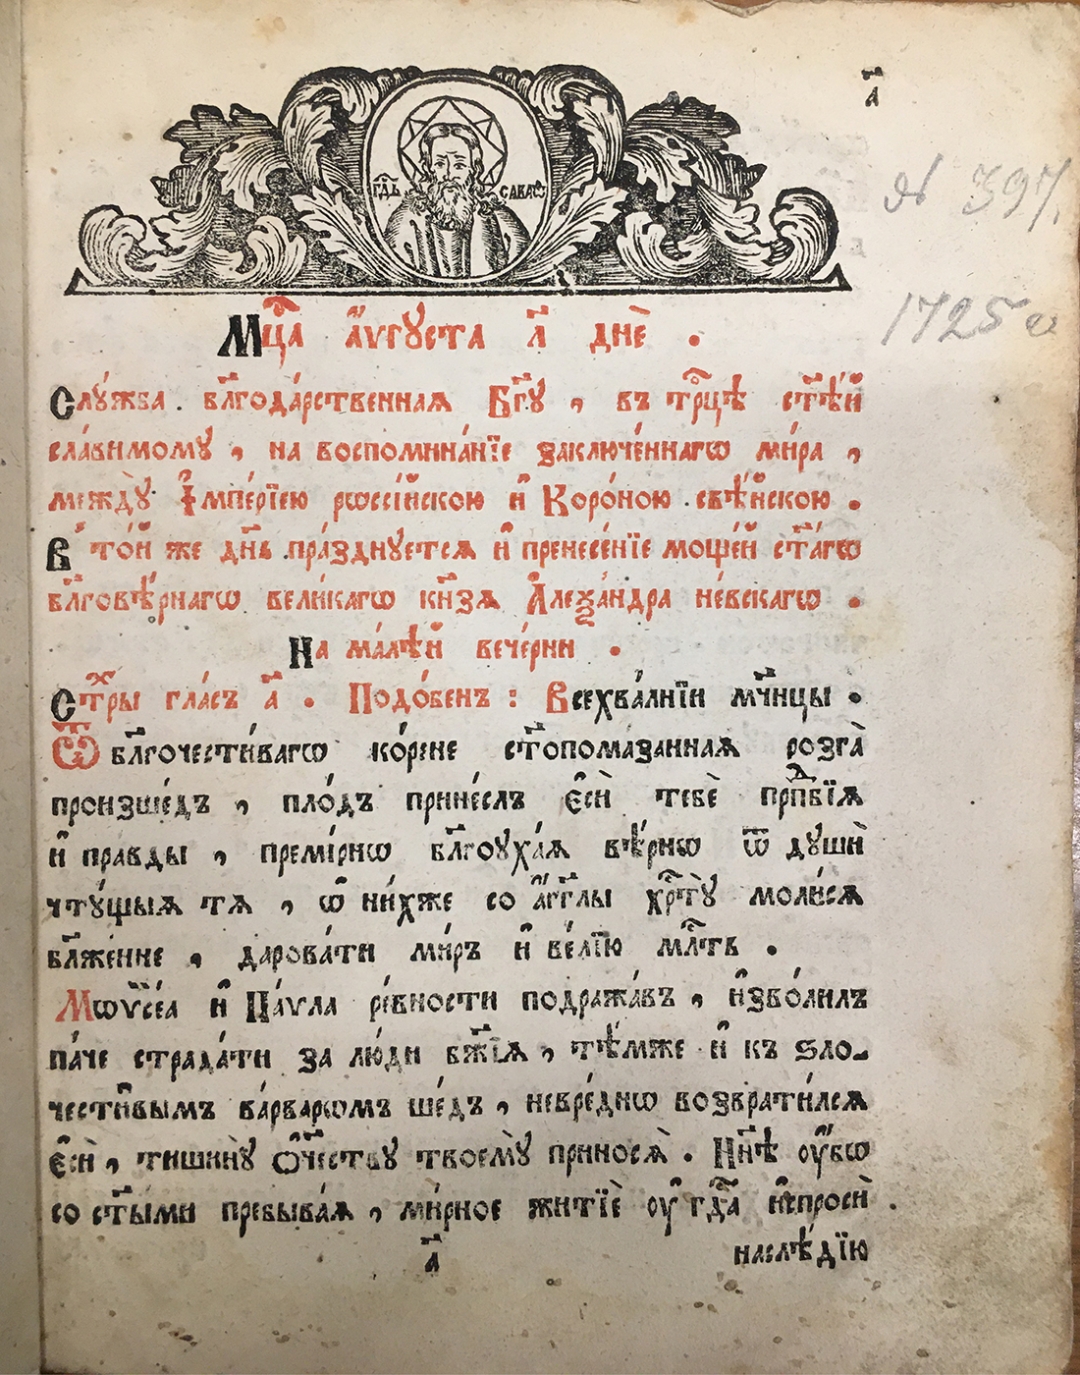 а҃
гдⷭ҇ь саваѡ҆
№ 397.
1725 г
Мцⷭ҇а а҆́ѵгꙋста л҃ днѐ .
Слꙋ́жба бл҃года́рственнаѧ Бг҃ꙋ , въ трⷪ҇цѣ ст҃ѣ́й
сла́вимомꙋ , на воспомина́нїе заключе́ннагѡ ми́ра ,
междꙋ̀ І҆мпе́рїею рѡссі́йскою и҆ Коро́ною свѣ́йскою .
В̾ то́й же дн҃ь пра́зднꙋетсѧ и҆ пренесе́нїе моще́й ст҃а́гѡ
бл҃говѣ́рнагѡ вели́кагѡ кн҃зѧ А҆леѯа́ндра не́вскагѡ .
На ма́лѣй вече́рни .
Стⷯры гла́съ а҃ . Подо́бенъ : Всехва́лнїи мч҃нцы .
Ѿ бл҃гочести́вагѡ ко́рене ст҃опома́заннаѧ розга̀
произше́дъ , пло́дъ прине́слъ є҆сѝ тебѐ прпⷣбїѧ
и҆ правды , преми́рнѡ бл҃гоꙋха́ѧ вѣ́рнѡ ѿ дꙋшѝ
чтꙋ́щыѧ тѧ , ѡ҆ ни́хже со а҆́гг҃лы хрⷭ҇тꙋ̀ моли́сѧ
бл҃же́нне , дарова́ти ми́ръ и҆ ве́лїю млⷭ҇ть .
Мѡѷсе́а и҆ Па́ѵла ре́вности подража́въ , и҆зво́лилъ
па́че страда́ти за лю́ди бж҃їѧ , тѣ́мже и҆ къ ѕло-
чести̑вымъ ва́рварѡмъ ше́дъ , невре́днѡ возврати́лсѧ
є҆сѝ , тишинꙋ̀ ѻ҆́ч҃ествꙋ твоемꙋ̀ приносѧ̀ . Нн҃ѣ ᲂу҆́бѡ
со ст҃ы́ми пребыва́ѧ , ми́рное житїѐ ᲂу҆ гдⷭ҇а и҆спросѝ .
а҃ наслѣ́дїю